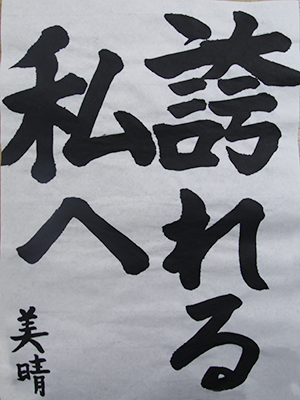 誇れる
私へ
美晴